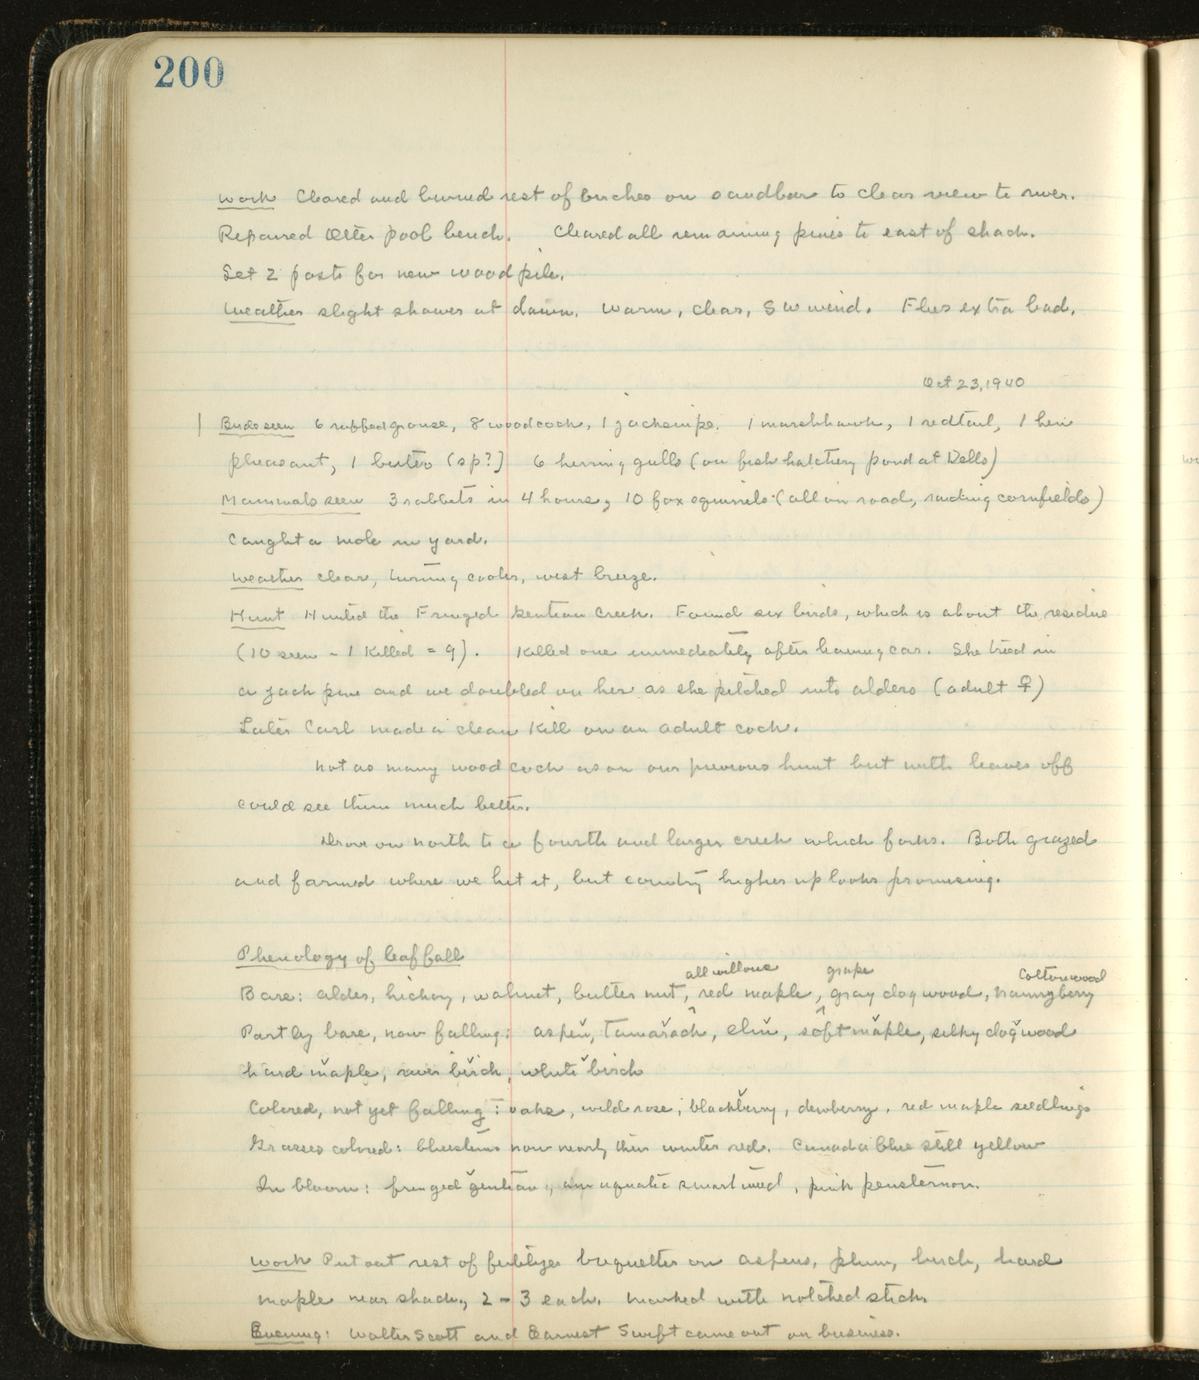 200
Work Cleared and burned rest of birches on sandbar to clear view to river.
Repaired Otter pool bench. Cleared all remaining pines to east of shack.
Set 2 posts for new wood pile.
Weather slight shower at dawn. Warm, clear, SW wind. Flies extra bad.
Oct 23, 1940
| Birds seen 6 ruffed grouse, 8 woodcock, 1 jacksnipe. 1 marshhawk, 1 redtail, 1 hen
pheasant, 1 buteo (sp?) 6 herring gulls (on fish hatchery pond at Dells)
Mammals seen 3 rabbits in 4 hours, 10 fox squirrels (all on road, raiding cornfields)
Caught a mole in yard.
Weather clear, turning cooler, west breeze.
Hunt Hunted the Fringed Gentian Creek. Found six birds, which is about the residue
(10 seen - 1 killed = 9). Killed one immediately after leaving car. She treed in
a jack pine and we doubled on her as she pitched into alders (adult ♀)
Later Carl made a clean kill on an adult cock.
Not as many woodcock as on our previous hunt but with leaves off
could see them much better.
Drove on north to a fourth and larger creek which forks. Both grazed
and farmed where we hit it, but country higher up looks promising.
Phenology of leaf fall
all willows grape Cottonwood
Bare: alder, hickory, walnut, butternut, red maple, gray dogwood, nannyberry
Partly bare, now falling: aspen, tamarack, elm, soft maple, silky dogwood
hard maple, river birch, white birch
Colored, not yet falling: oaks, wild rose, blackberry, dewberry, red maple seedlings
Grasses colored: bluestems now nearly their winter red. Canada blue still yellow
In bloom: fringed gentian, aquatic smartweed, pink penstemon.
Work Put out rest of fertilizer briquettes on aspens, plum, birch, hard
maple near shack, 2-3 each. Marked with notched sticks
Evening: Walter Scott and Earnest Swift came out on business.